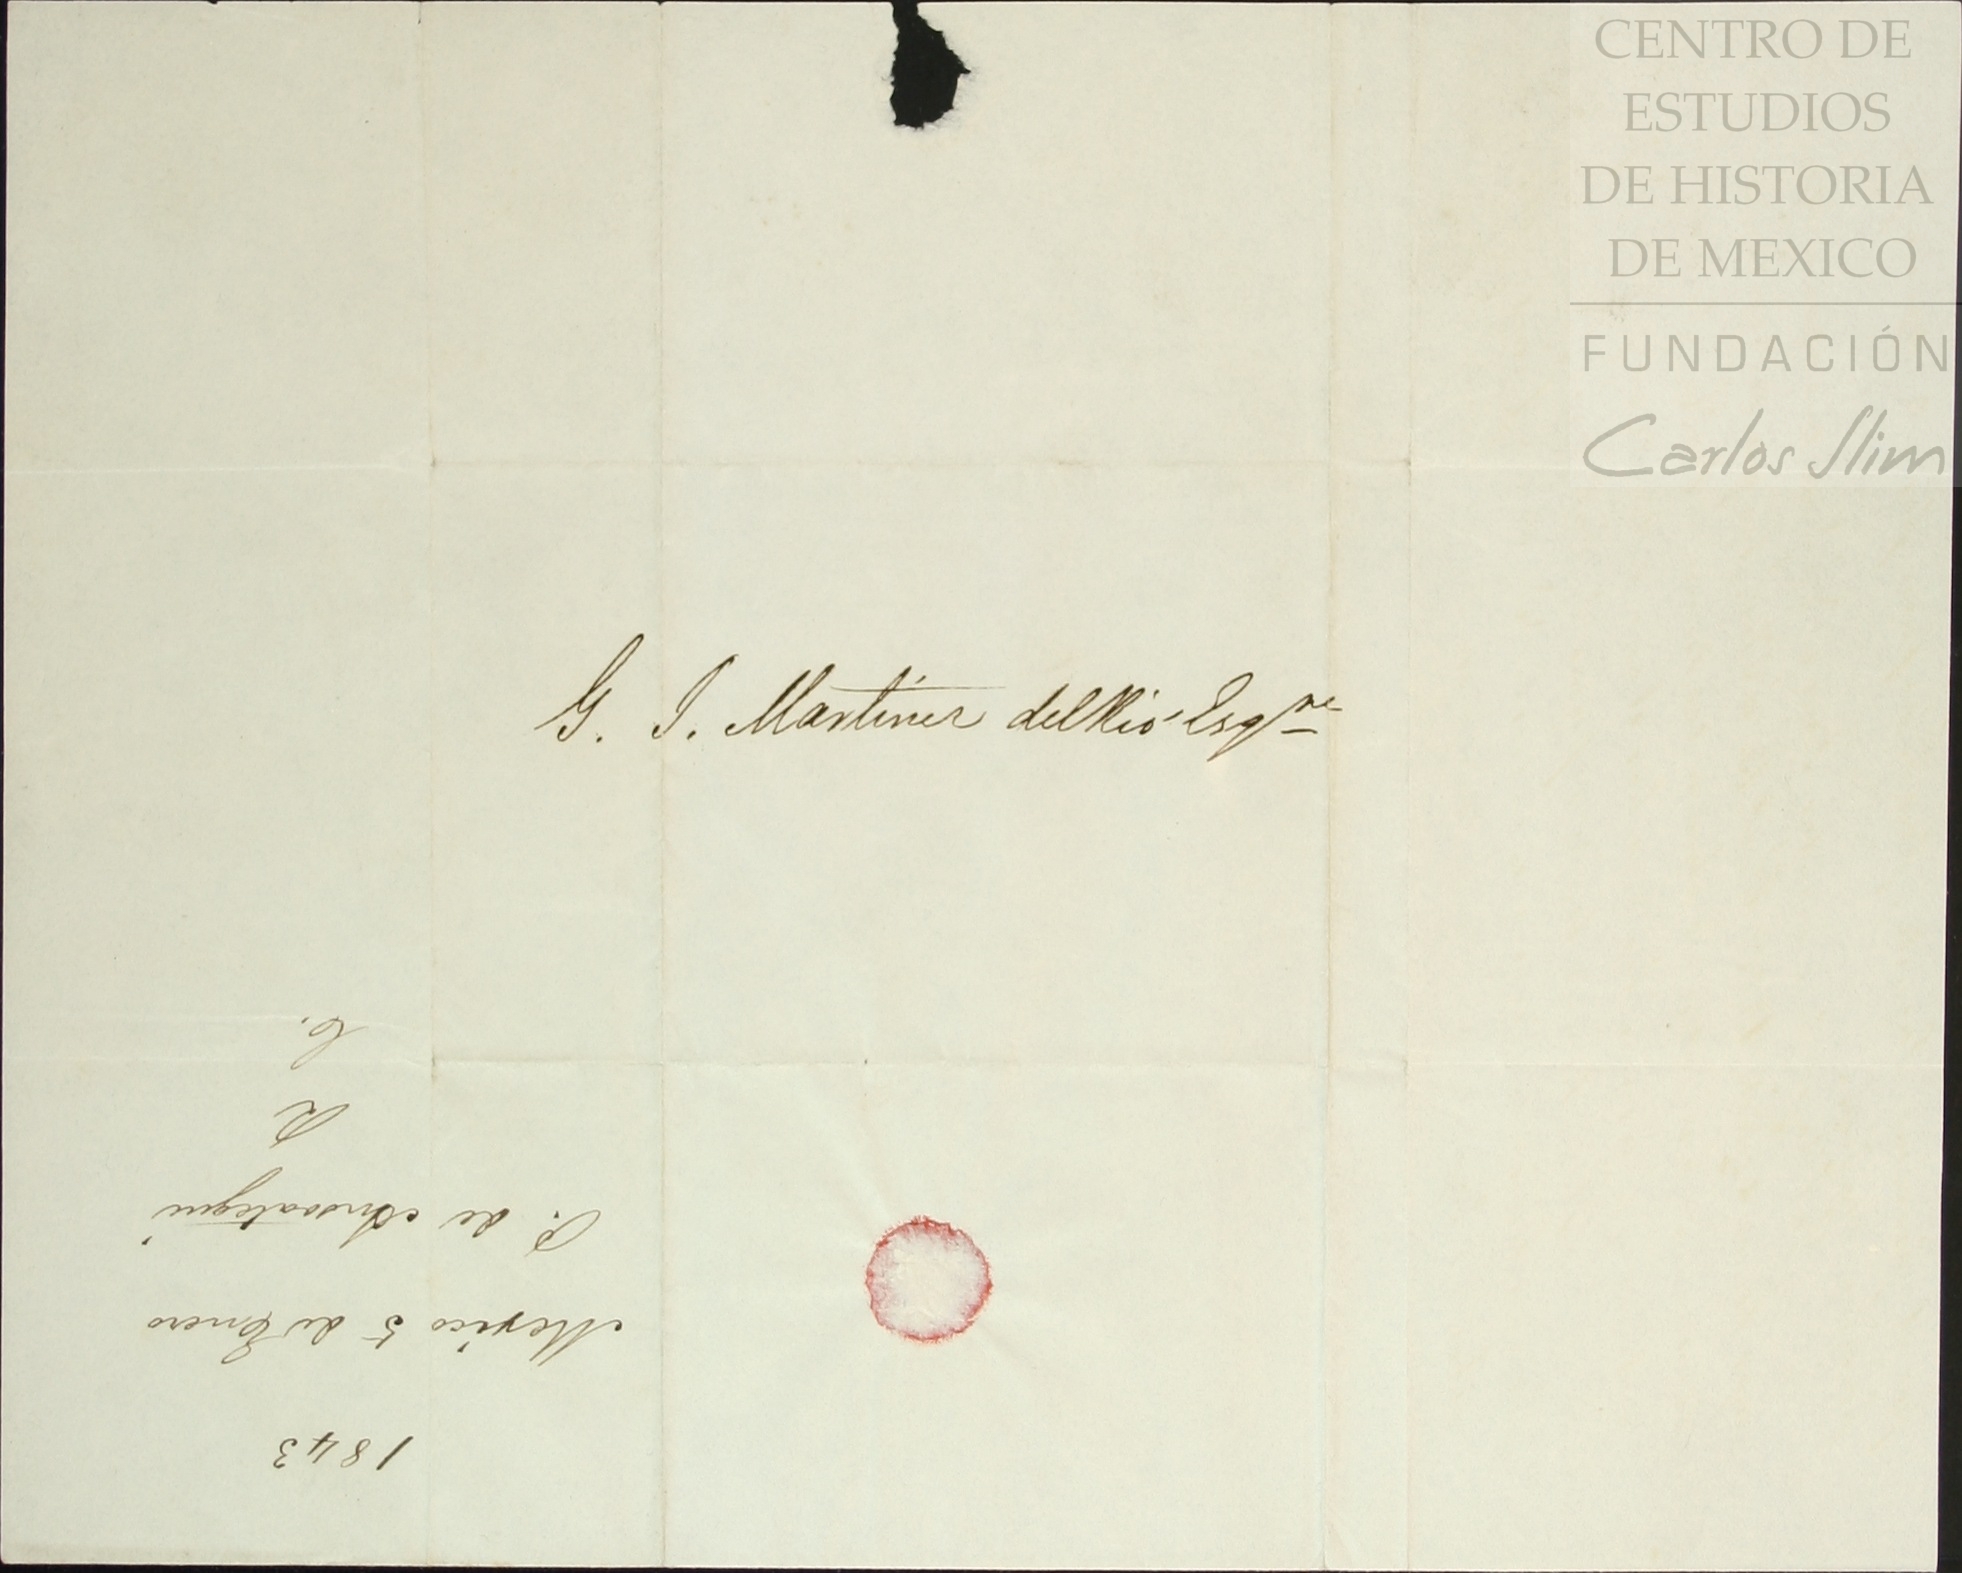 CENTRO DE
ESTUDIOS
DE HISTORIA
DE MEXICO
FUNDACIÓN
Carlos Slim
G. J. Martinez del Rio Esqre
1843
Mexico 5 de Enero
P. de Ansoategui
R
C.